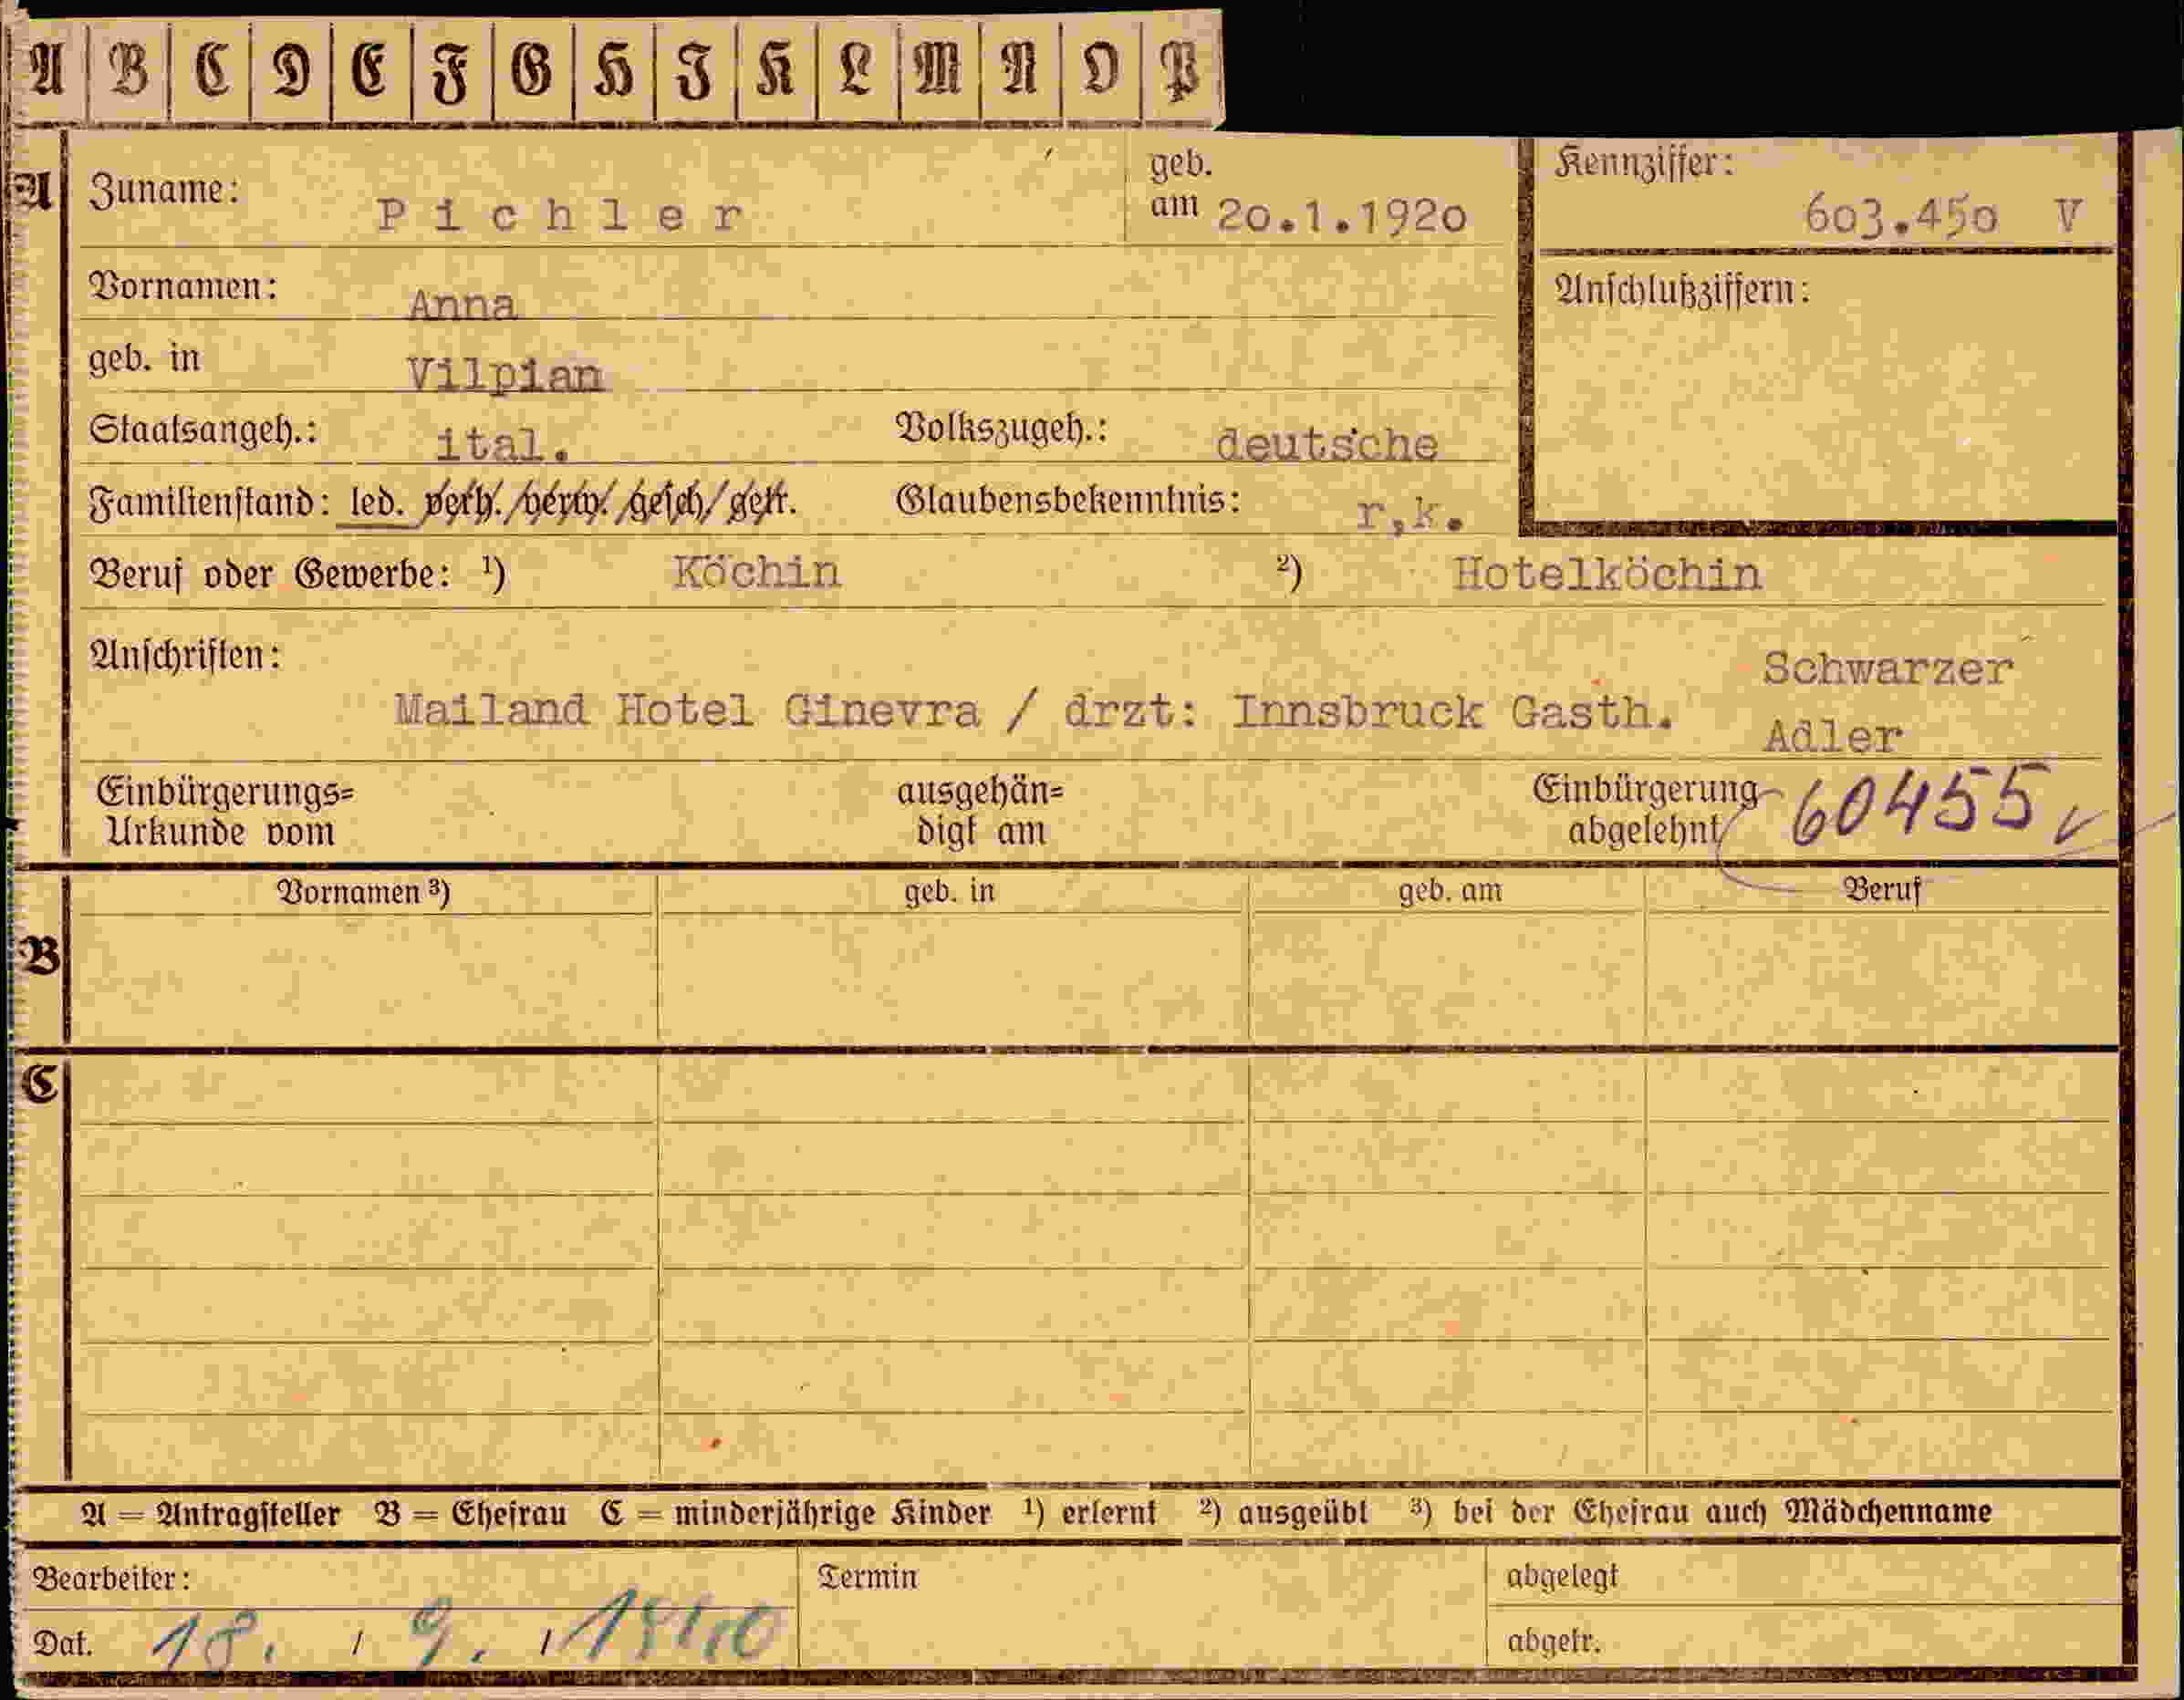 A B C D E F G H J K L M N O P
A Zuname: Pichler geb. am 20.1.1920 Kennziffer: 603.450 V
Vornamen: Anna Anschlußziffern:
geb. in Vilpian
Staatsangeh.: ital. Volkszugeh.: deutsche
Familienstand: led. verh./verw./gesch/getr. Glaubensbekenntnis: r,k.
Beruf oder Gewerbe: ¹) Köchin ²) Hotelköchin
Anschriften: Mailand Hotel Ginevra / drzt: Innsbruck Gasth. Schwarzer
Adler
Einbürgerungs= ausgehän= Einbürgerung 60455 v
Urkunde vom digt am abgelehnt
Vornamen ³) geb. in geb. am Beruf
B
C
A = Antragsteller B = Ehefrau C = minderjährige Kinder ¹) erlernt ²) ausgeübt ³) bei der Ehefrau auch Mädchenname
Bearbeiter: Termin abgelegt
Dat. 18. / 9. / 1940 abgetr.